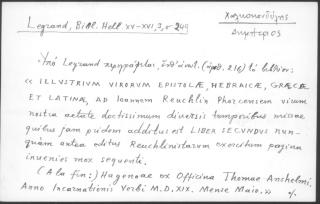 Legrand, Bibl. Hell. XV-XVI, 3, σ 244
Χαλκοκονδύλης
Δημήτριος
Ὑπὸ Legrand περιγράφεται, ἐνθ' ἀνωτ. (ἀριθ. 216) τὸ βιβλίον:
« ILLVSTRIVM VIRORVM EPISTOLÆ, HEBRAICÆ, GRÆCÆ
ET LATINÆ, AD Ioannem Reuchlin Phorcensem virum
nostra aetate doctissimum diversis temporibus missae
quibus jam pridem additus est LIBER SECVNDVS nun-
quam antea editus Reuchlinistarum exercitum pagina
invenies mox sequenti.
(A la fin:) Hagenoae ex Officina Thomae Anshelmi
Anno Incarnationis Verbi M.D.XIX. Mense Maio. »